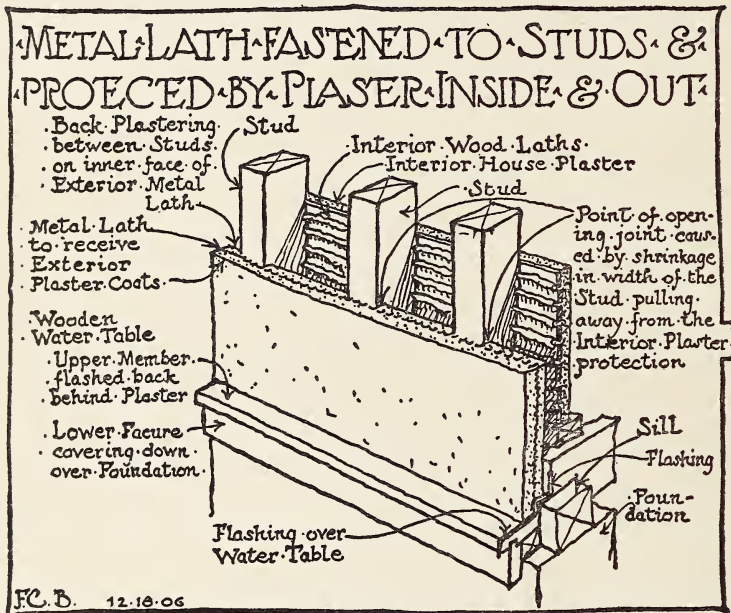 ·METAL·LATH·FASTENED·TO·STUDS·&·
·PROECED·BY·PLASER·INSIDE·&·OUT·
·Back·Plastering·
·between·Studs·
·on·inner·face·of·
·Exterior·Metal
Lath
Stud
·Interior·Wood·Laths·
Interior·House·Plaster
·Stud·
·Metal·Lath
·to·receive
·Exterior
·Plaster·Coats·
Point·of·open-
ing·joint·caus-
ed·by·shrinkage
in·width·of·the
Stud·pulling·
away·from·the
Interior·Plaster·
protection
·Wooden
·Water·Table
·Upper·Member·
·flashed·back
·behind·Plaster
·Lower·Facure
·covering·down
over·Foundation·
Sill
Flashing
·Foun-
dation·
Flashing·over
Water·Table
F.C.B. 12·18·06